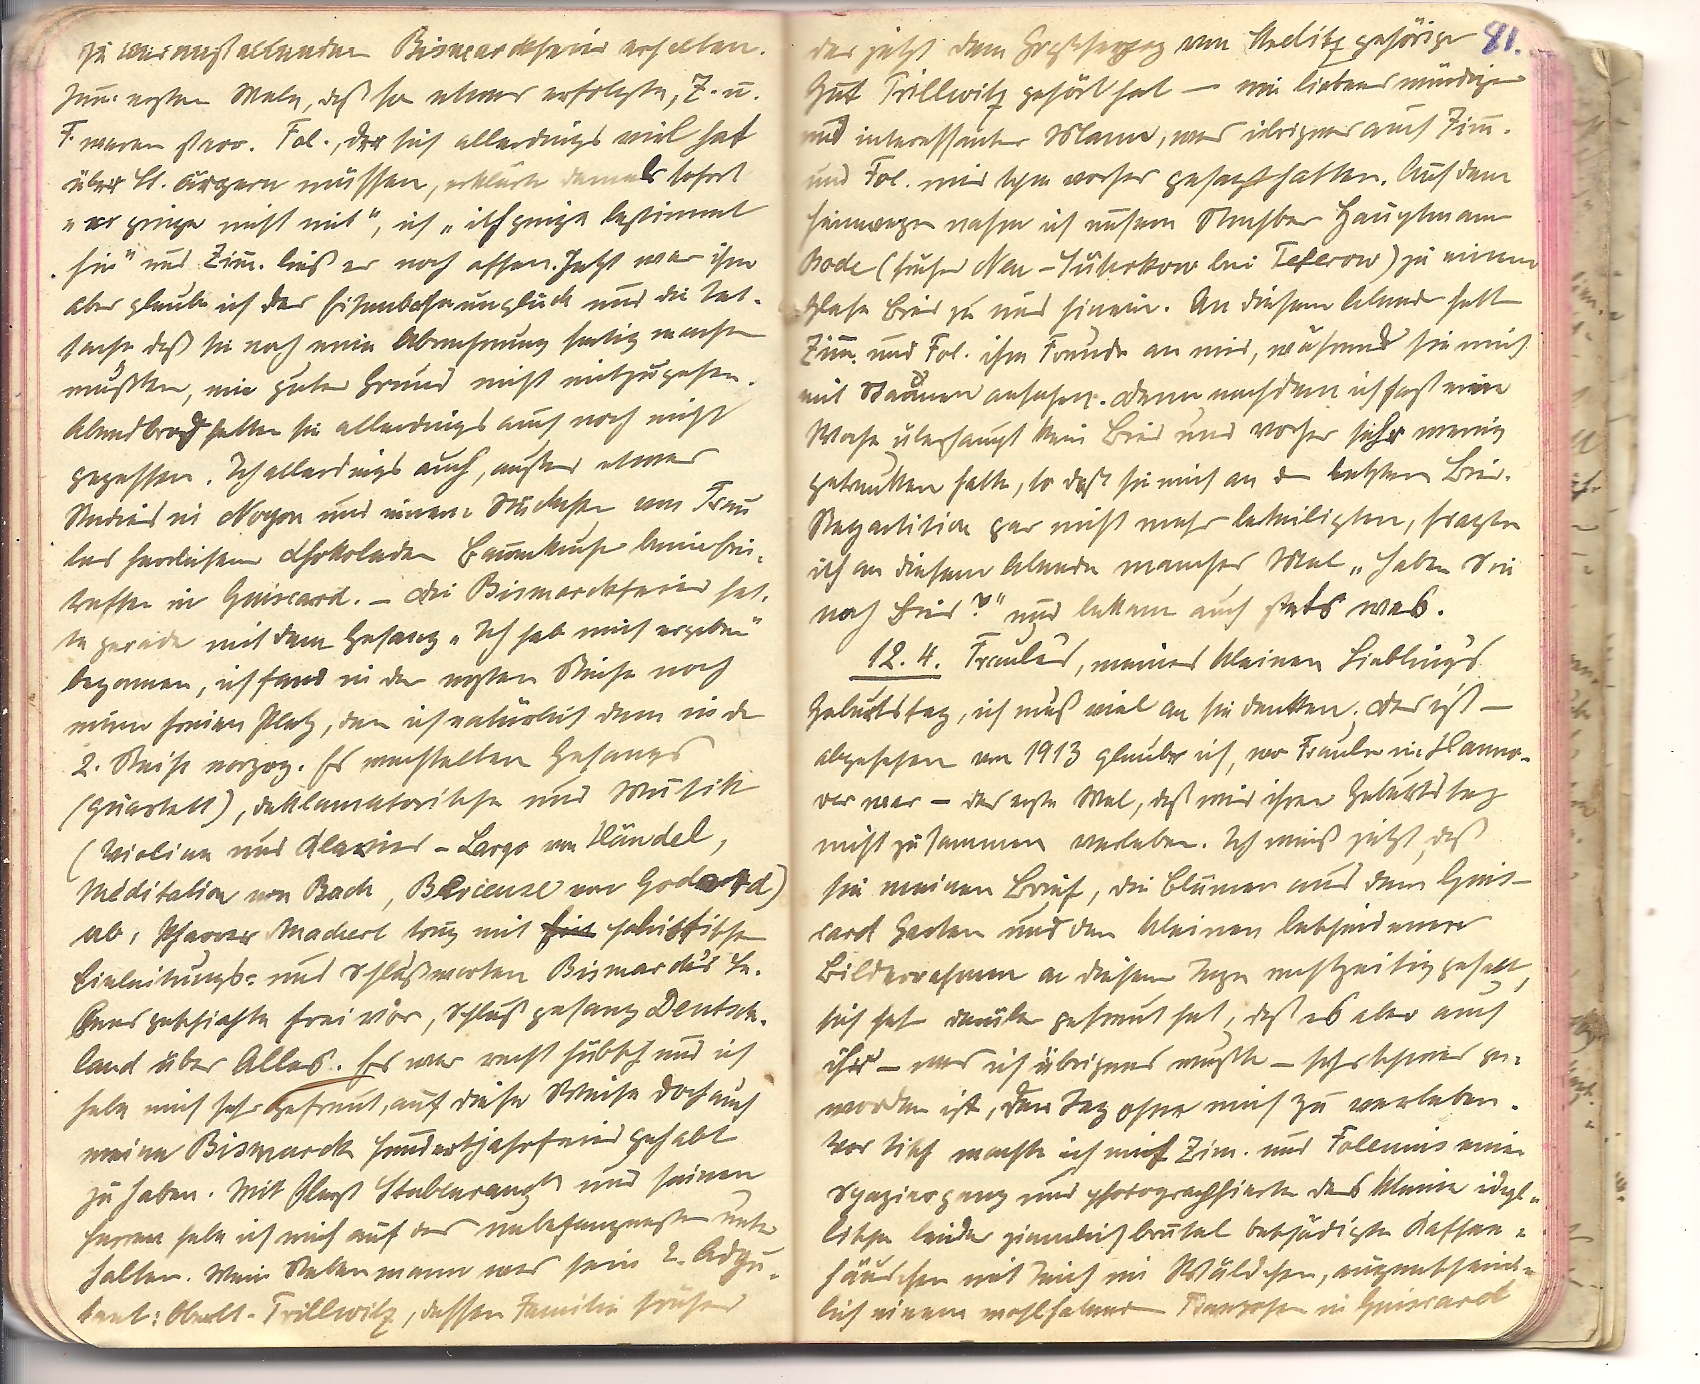 zu veranstaltenden Bismarckfeier erhalten.
Zum ersten Male, daß so etwas erfolgte, Z. u.
F. waren starr. Fol., der sich allerdings viel hat
über St. ärgern müssen, erklärte damals sofort
"er ginge nicht mit", ich "ich ginge bestimmt
hin" und Zim. ließ es noch offen. Jetzt war ihm
aber glaube ich das Eisenbahnunglück und die Tat-
sache daß sie noch eine Abrechnung fertig machen
mußten, ein guter Grund nicht mitzugehen.
Abendbrod hatten sie allerdings auch noch nicht
gegessen. Ich allerdings auch, außer etwas
in Noyon und einem Stückchen von Frau
herrlichem Schokoladen Baumkuchen beim Ein-
treffen in Guiscard. – Die Bismarckfeier hat-
te gerade mit dem Gesang "Ich hab mich ergeben"
begonnen, ich fand in der ersten Reihe noch
einen freien Platz, den ich natürlich dem in der
2. Reihe vorzog. Es wechselten Gesangs
(Quartett), deklamatorische und Musik
(Violine und Klavier – Largo von Händel,
Méditation von Bach, Berceuse von Godard)
ab, Pfarrer Mackert trug mit schriftlichen
Einleitungs- und Schlußworten Bismarck's Le-
bensgeschichte frei vor, Schlußgesang Deutsch-
land über Alles. Es war recht hübsch und ich
habe mich sehr gefreut, auf diese Weise doch auch
meine Bismarck hundertjahrfeier gehabt
zu haben. Mit Stabenrauch und seinen
Herren habe ich mich auf das unbefangenste unter-
halten. Mein Nebenmann war sein 2. Adju-
tant: Oberlt. Trillwitz, dessen Familie früher
81.
das jetzt dem Großherzog von Strelitz gehörige
Gut Trillwitz gehört hat – ein liebenswürdiger
und interessanter Mann, was übrigens auch Zim.
und Fol. mir schon vorher gesagt hatten. Auf dem
Heimwege nahm ich unsern Nachbar Hauptmann
Bode (früher Neu-Sührkow bei Teterow) zu einem
Glase Bier zu uns hinein. An diesem Abend hatten
Zim. und Fol. ihre Freude an mir, während sie mich
mit Staunen ansahen. Denn nachdem ich fast eine
Woche überhaupt kein Bier und vorher sehr wenig
getrunken hatte, so daß sie mich an der letzten Bier-
Repartition gar nicht mehr beteiligten, fragte
ich an diesem Abende manches Mal "haben Sie
noch Bier?" und bekam auch stets was.
12. 4. Fraule's, meines kleinen Lieblings
Geburtstag, ich muß viel an sie denken. Das ist –
abgesehen von 1913 glaube ich, wo Fraule in Hanno-
ver war – das erste Mal, daß wir ihren Geburtstag
nicht zusammen verleben. Ich weiß jetzt, daß
sie meinen Brief, die Blumen aus dem Guis-
card Garten und den kleinen
Bilderrahmen an diesem Tage rechtzeitig gehabt,
sich sehr darüber gefreut hat, daß es aber auch
ihr – was ich übrigens wußte – sehr schwer ge-
worden ist, den Tag ohne mich zu verleben.
Vor Tisch machte ich mit Zim. und Follenius einen
Spaziergang und photographierte das kleine idyl-
lische leider ziemlich brutal beschädigte
häuschen mit Teich im Wäldchen, augenschein-
lich einem wohlhabenden Franzosen in Guiscard